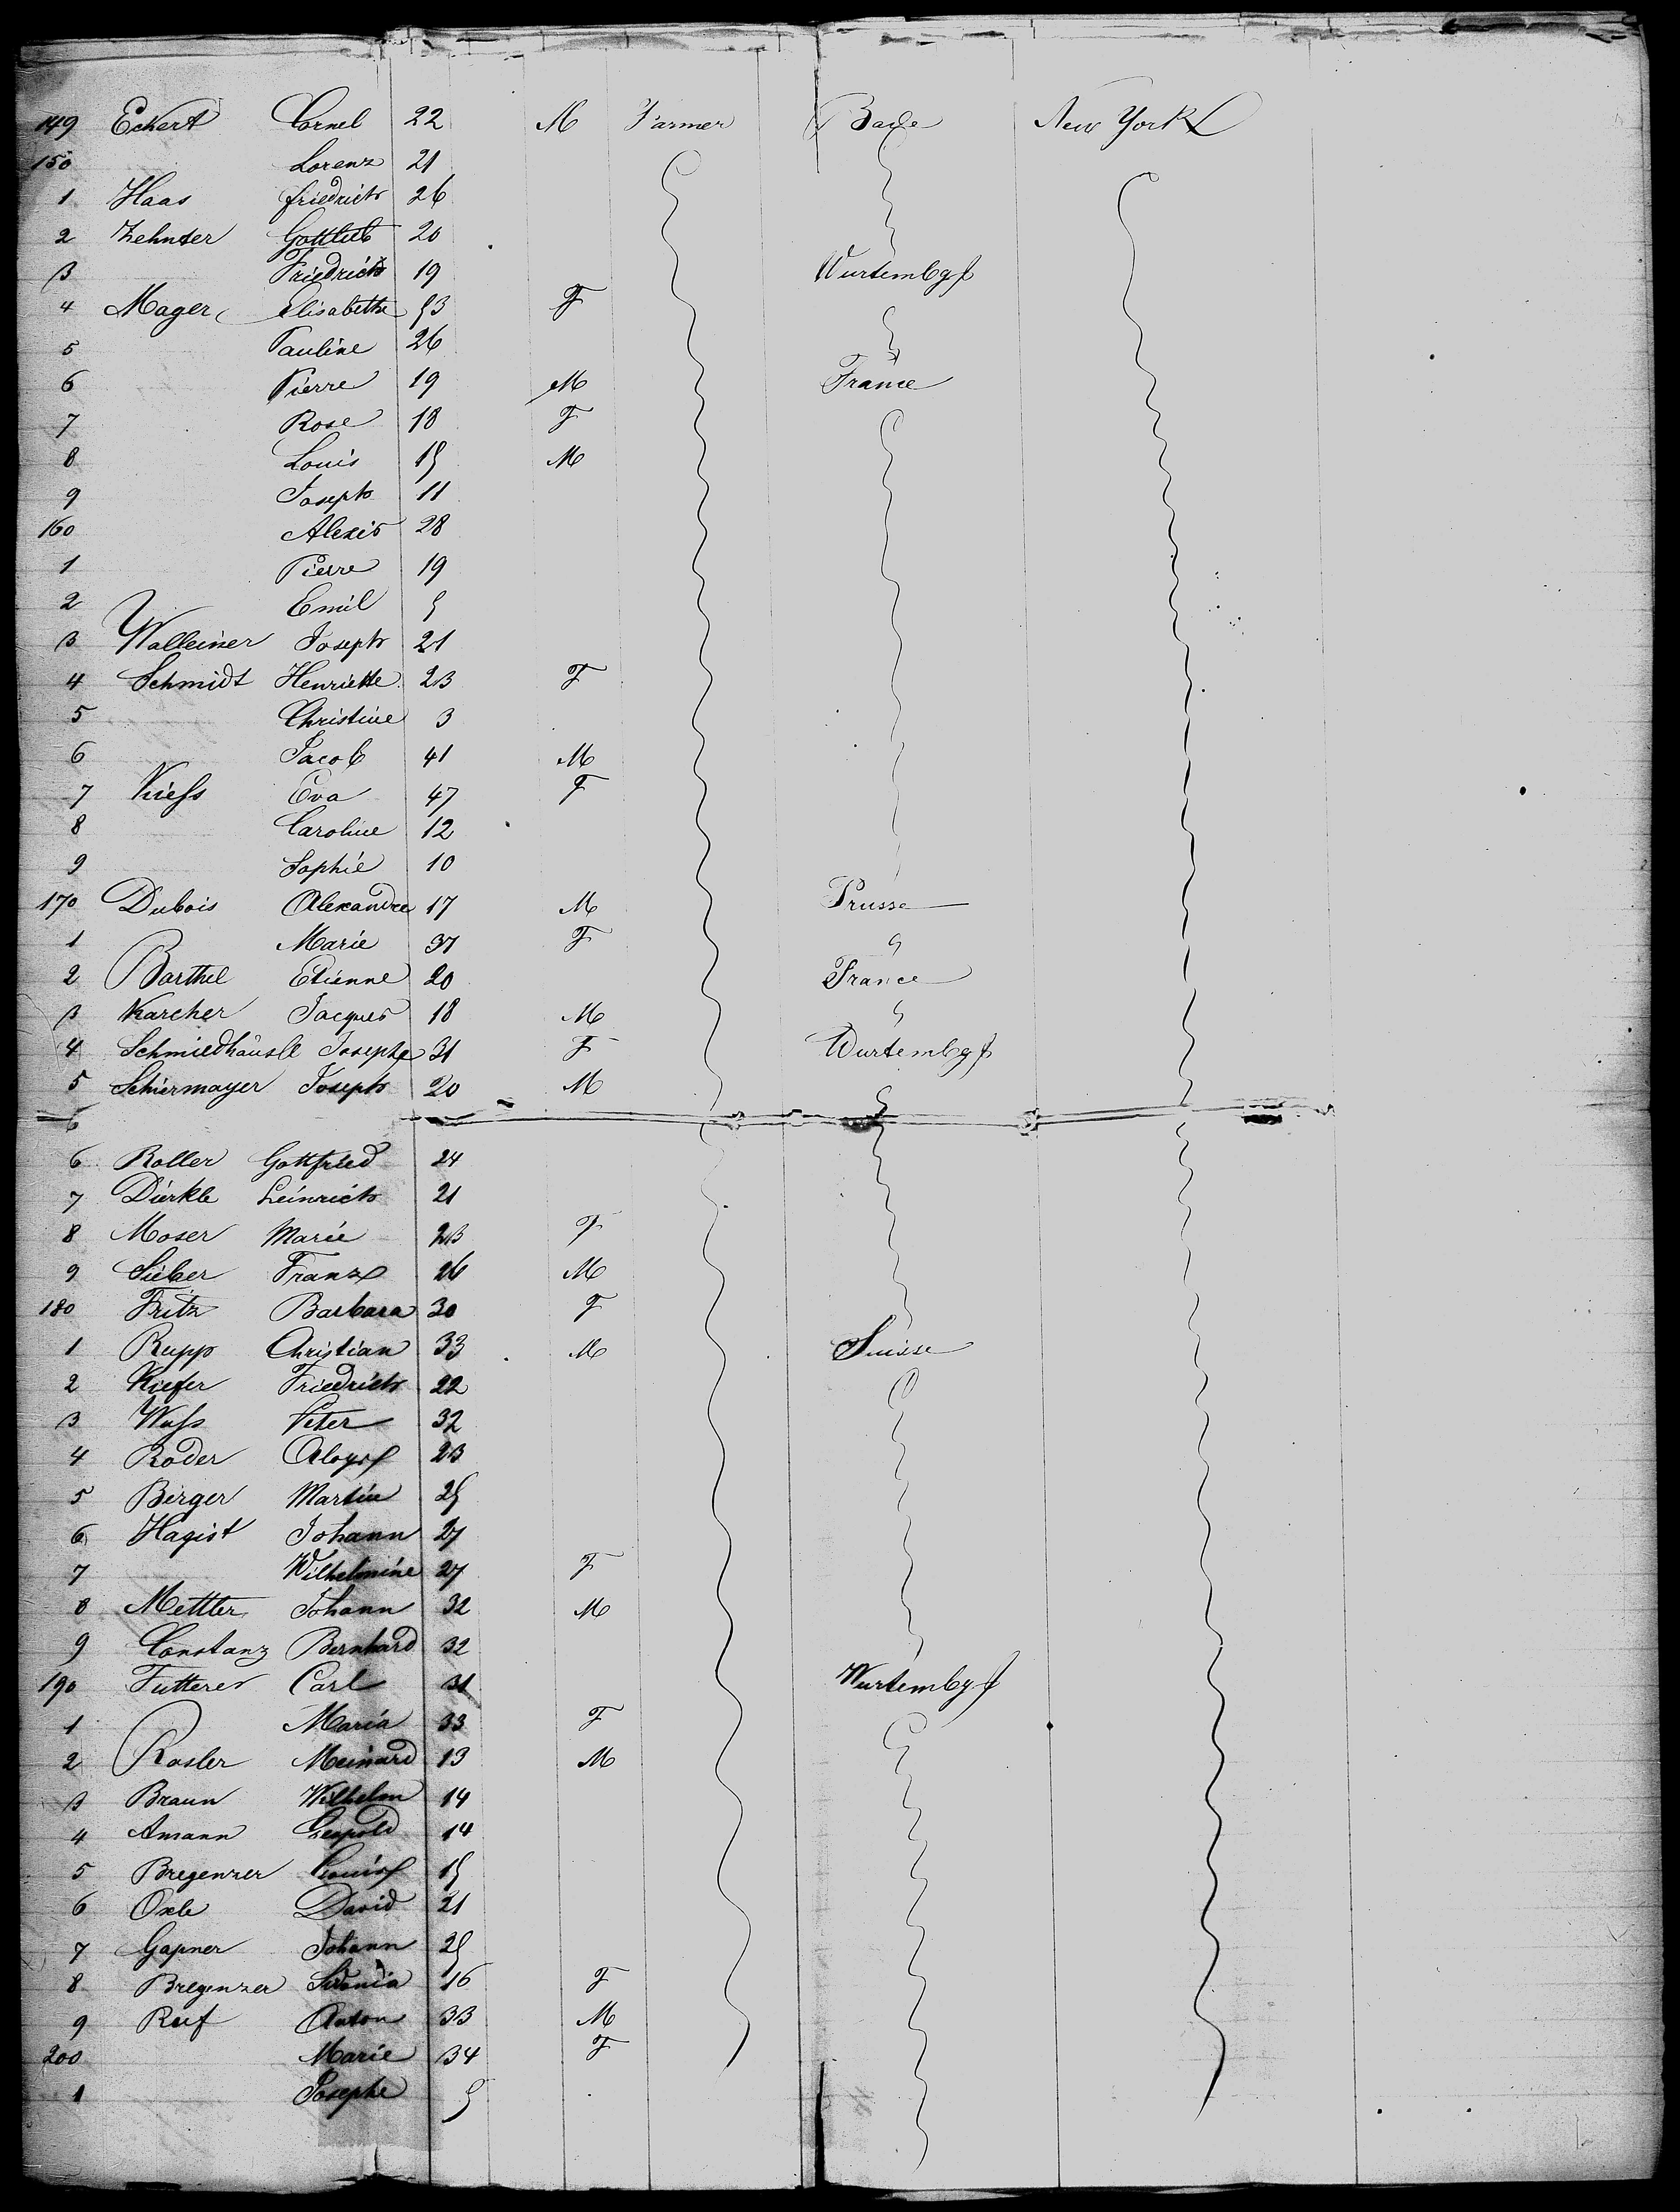 149 Eckert Cornel 22 M Farmer Bade New York
150 Lorenz 21
1 Haas friedrich 26
2 Zehnter Gottlieb 20
3 Friedrich 19 Wurtembg
4 Mager Elisabethe 53 F
5 Pauline 26
6 Pierre 19 M France
7 Rose 18 F
8 Louis 15 M
9 Joseph 11
160 Alexis 28
1 Pierre 19
2 Emil 5
3 Walleiner Joseph 21
4 Schmidt Henriette 23 F
5 Christine 3
6 Jacob 41 M
7 Kiess Eva 47 F
8 Caroline 12
9 Sophie 10
170 Dubois Alexandre 17 M Prusse
1 Marie 37 F
2 Barthel Etienne 20 France
3 Karcher Jacques 18 M
4 Schmiedhäusle Josephe 31 F Wurtembg
5 Schirmayer Joseph 20 M
6
6 Roller Gottfried 24
7 Dierkle Heinrich 21
8 Moser Marie 23 F
9 Sieber Franz 26 M
180 Fritz Barbara 30 F
1 Rupp Christian 33 M Suisse
2 Kiefer Friedrich 22
3 Wyss Peter 32
4 Roder Aloys 23
5 Berger Martin 25
6 Hagist Johann 27
7 Wilhelmine 27 F
8 Mettler Johann 32 M
9 Constanz Bernhard 32
190 Futterer Carl 31 Wurtembg
1 Maria 33 F
2 Rosler Meinard 13 M
3 Braun Wilhelm 14
4 Amann Leopold 14
5 Bregenzer Louis 15
6 Oxle David 21
7 Gapner Johann 25
8 Bregenzer Sidonia 16 F
9 Ruf Anton 33 M
200 Marie 34 F
1 Josephe 5